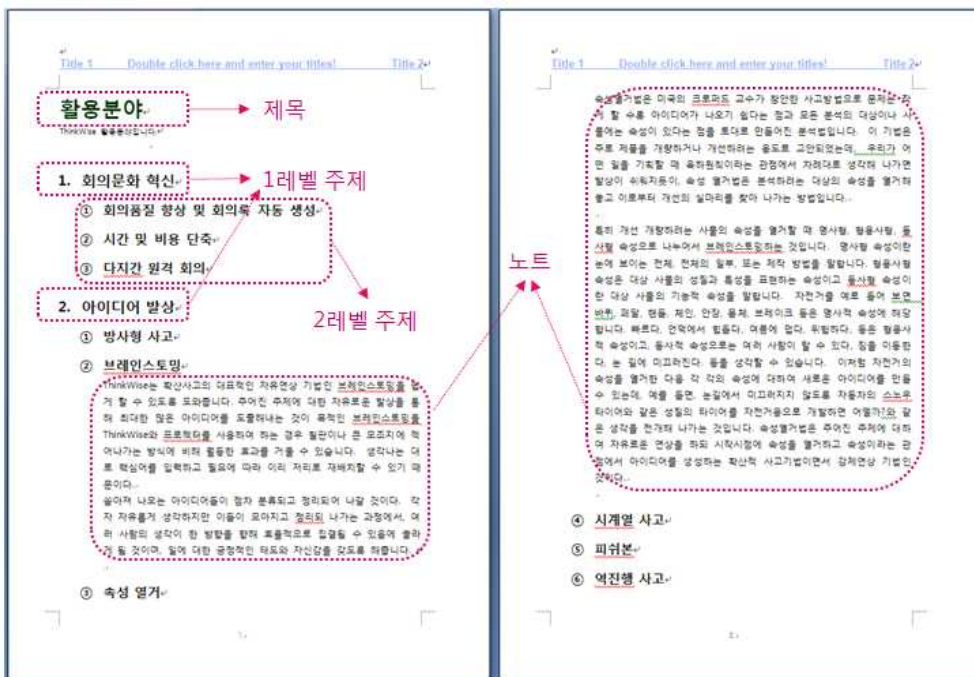 Title 1 Double click here and enter your titles! Title 2
활용분야
제목
ThinkWise 활용분야입니다.
1. 회의문화 혁신
1레벨 주제
① 회의품질 향상 및 회의록 자동 생성
② 시간 및 비용 단축
③ 다지간 원격 회의
2레벨 주제
2. 아이디어 발상
① 방사형 사고
② 브레인스토밍
ThinkWise는 확산사고의 대표적인 자유연상 기법인 브레인스토밍을 쉽
게 할 수 있도록 도와줍니다. 주어진 주제에 대한 자유로운 발상을 통
해 최대한 많은 아이디어를 도출해내는 것이 목적인 브레인스토밍을
ThinkWise와 프로젝터를 사용하여 하는 경우 칠판이나 큰 모조지에 적
어나가는 방식에 비해 월등한 효과를 거둘 수 있습니다. 생각나는 대
로 핵심어를 입력하고 필요에 따라 이리 저리로 재배치할 수 있기 때
문이다.
쏟아져 나오는 아이디어들이 점차 분류되고 정리되어 나갈 것이다. 각
자 자유롭게 생각하지만 이들이 모아지고 정리되 나가는 과정에서, 여
러 사람의 생각이 한 방향을 향해 효율적으로 집결될 수 있음에 놀라
게 될 것이며, 일에 대한 긍정적인 태도와 자신감을 갖도록 해줍니다.
③ 속성 열거
1
노트
Title 1 Double click here and enter your titles! Title 2
속성열거법은 미국의 크로퍼드 교수가 창안한 사고방법으로 문제는 작
게 할 수록 아이디어가 나오기 쉽다는 점과 모든 분석의 대상이나 사
물에는 속성이 있다는 점을 토대로 만들어진 분석법입니다. 이 기법은
주로 제품을 개량하거나 개선하려는 용도로 고안되었는데, 우리가 어
떤 일을 기획할 때 육하원칙이라는 관점에서 차례대로 생각해 나가면
발상이 쉬워지듯이, 속성 열거법은 분석하려는 대상의 속성을 열거해
놓고 이로부터 개선의 실마리를 찾아 나가는 방법입니다.
특히 개선 개량하려는 사물의 속성을 열거할 때 명사형, 형용사형, 동
사형 속성으로 나누어서 브레인스토밍하는 것입니다. 명사형 속성이란
눈에 보이는 전체, 전체의 일부, 또는 제작 방법을 말합니다. 형용사형
속성은 대상 사물의 성질과 특성을 표현하는 속성이고 동사형 속성이
란 대상 사물의 기능적 속성을 말합니다. 자전거를 예로 들어 보면
바퀴, 페달, 핸들, 체인, 안장, 몸체, 브레이크 등은 명사적 속성에 해당
합니다. 빠르다, 언덕에서 힘들다, 여름에 덥다, 위험하다, 등은 형용사
적 속성이고, 동사적 속성으로는 여러 사람이 탈 수 있다, 짐을 이동한
다, 눈 길에 미끄러진다, 등을 생각할 수 있습니다. 이처럼 자전거의
속성을 열거한 다음 각 각의 속성에 대하여 새로운 아이디어를 만들
수 있는데, 예를 들면, 눈길에서 미끄러지지 않도록 자동차의 스노우
타이어와 같은 성질의 타이어를 자전거용으로 개발하면 어떨까?와 같
은 생각을 전개해 나가는 것입니다. 속성열거법은 주어진 주제에 대하
여 자유로운 연상을 하되 시작시점에 속성을 열거하고 속성이라는 관
점에서 아이디어를 생성하는 확산적 사고기법이면서 강제연상 기법인
것이다.
④ 시계열 사고
⑤ 피쉬본
⑥ 역진행 사고
2